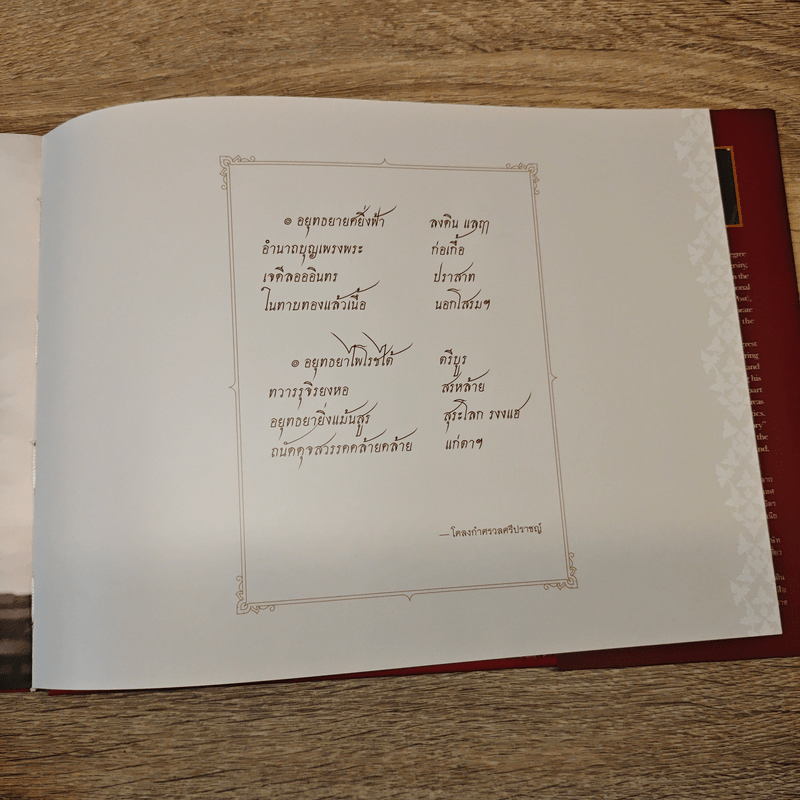 ๏ อยุทธยายศยิ่งฟ้า ลงดิน แลฤๅ
อำนาถบุญเพรงพระ ก่อเกื้อ
เจดีลอออินทร ปราสาท
ในทาบทองแล้วเนื้อ นอกโสรมฯ
๏ อยุทธยาไพโรชใต้ ตรีบูร
ทวารรุจิรยงหอ สรหล้าย
อยุทธยายิ่งแม้นสูร สุระโลก รงงแฮ
ถนัดดุจสวรรคคล้ายคล้าย แก่ตาฯ
— โคลงกำศรวลศรีปราชญ์